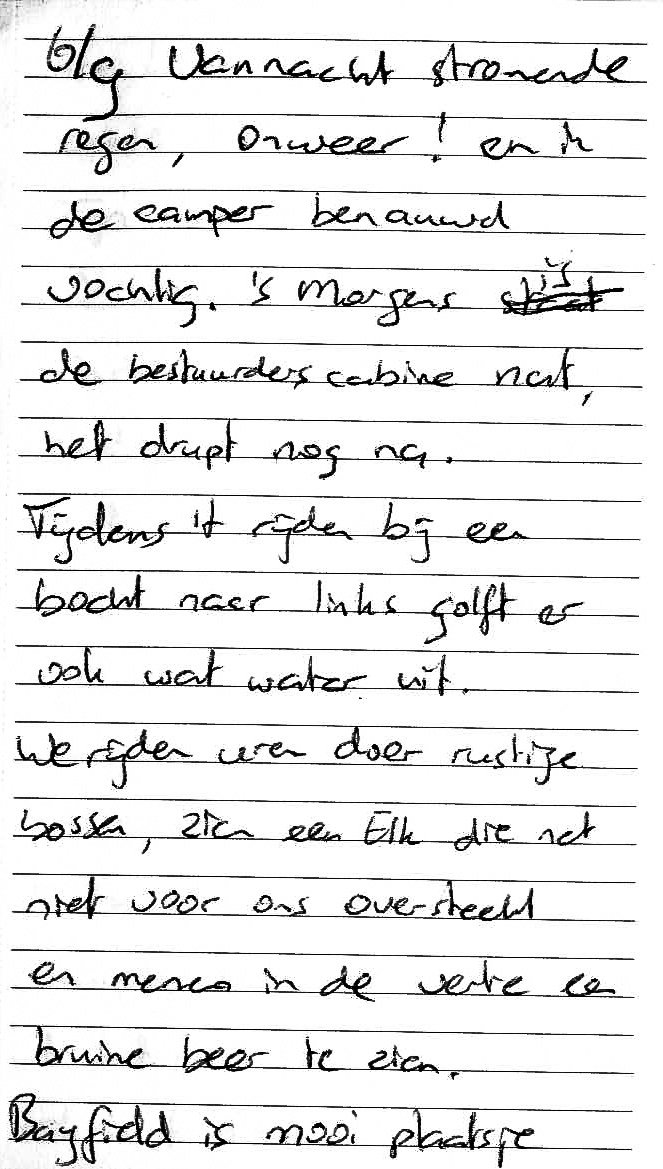 6/9 Vannacht stromende
regen, onweer! en in
de camper benauwd
vochtig. 's Morgens is
de bestuurders cabine nat,
het drupt nog na.
Tijdens 't rijden bij een
bocht naar links golft er
ook wat water uit.
We rijden uren door rustige
bossen, zien een Elk die net
niet voor ons oversteekt
en menen in de verte een
bruine beer te zien.
Bayfield is mooi plaatsje